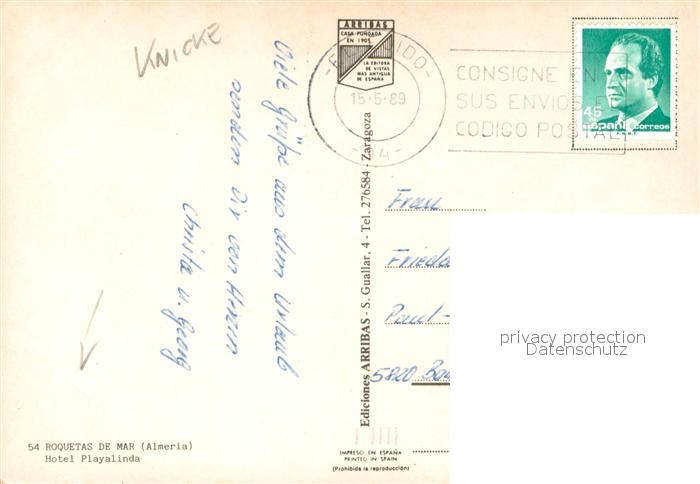 KNICKE
ARRIBAS
CASA FUNDADA
EN 1905
LA EDITORA
DE VISTAS
MAS ANTIGUA
DE ESPAÑA
15-5-89
CONSIGNE EN
SUS ENVIOS EL
CODIGO POSTAL
45
España correos
Viele Grüße aus dem Urlaub
senden Dir von Herzen
Christa u. Georg
Ediciones ARRIBAS - S. Guallar, 4 - Tel. 276584 - Zaragoza
Frau
Paul-
5820
privacy protection
Datenschutz
54 ROQUETAS DE MAR (Almería)
Hotel Playalinda
IMPRESO EN ESPAÑA
PRINTED IN SPAIN
(Prohibida la reproducción)